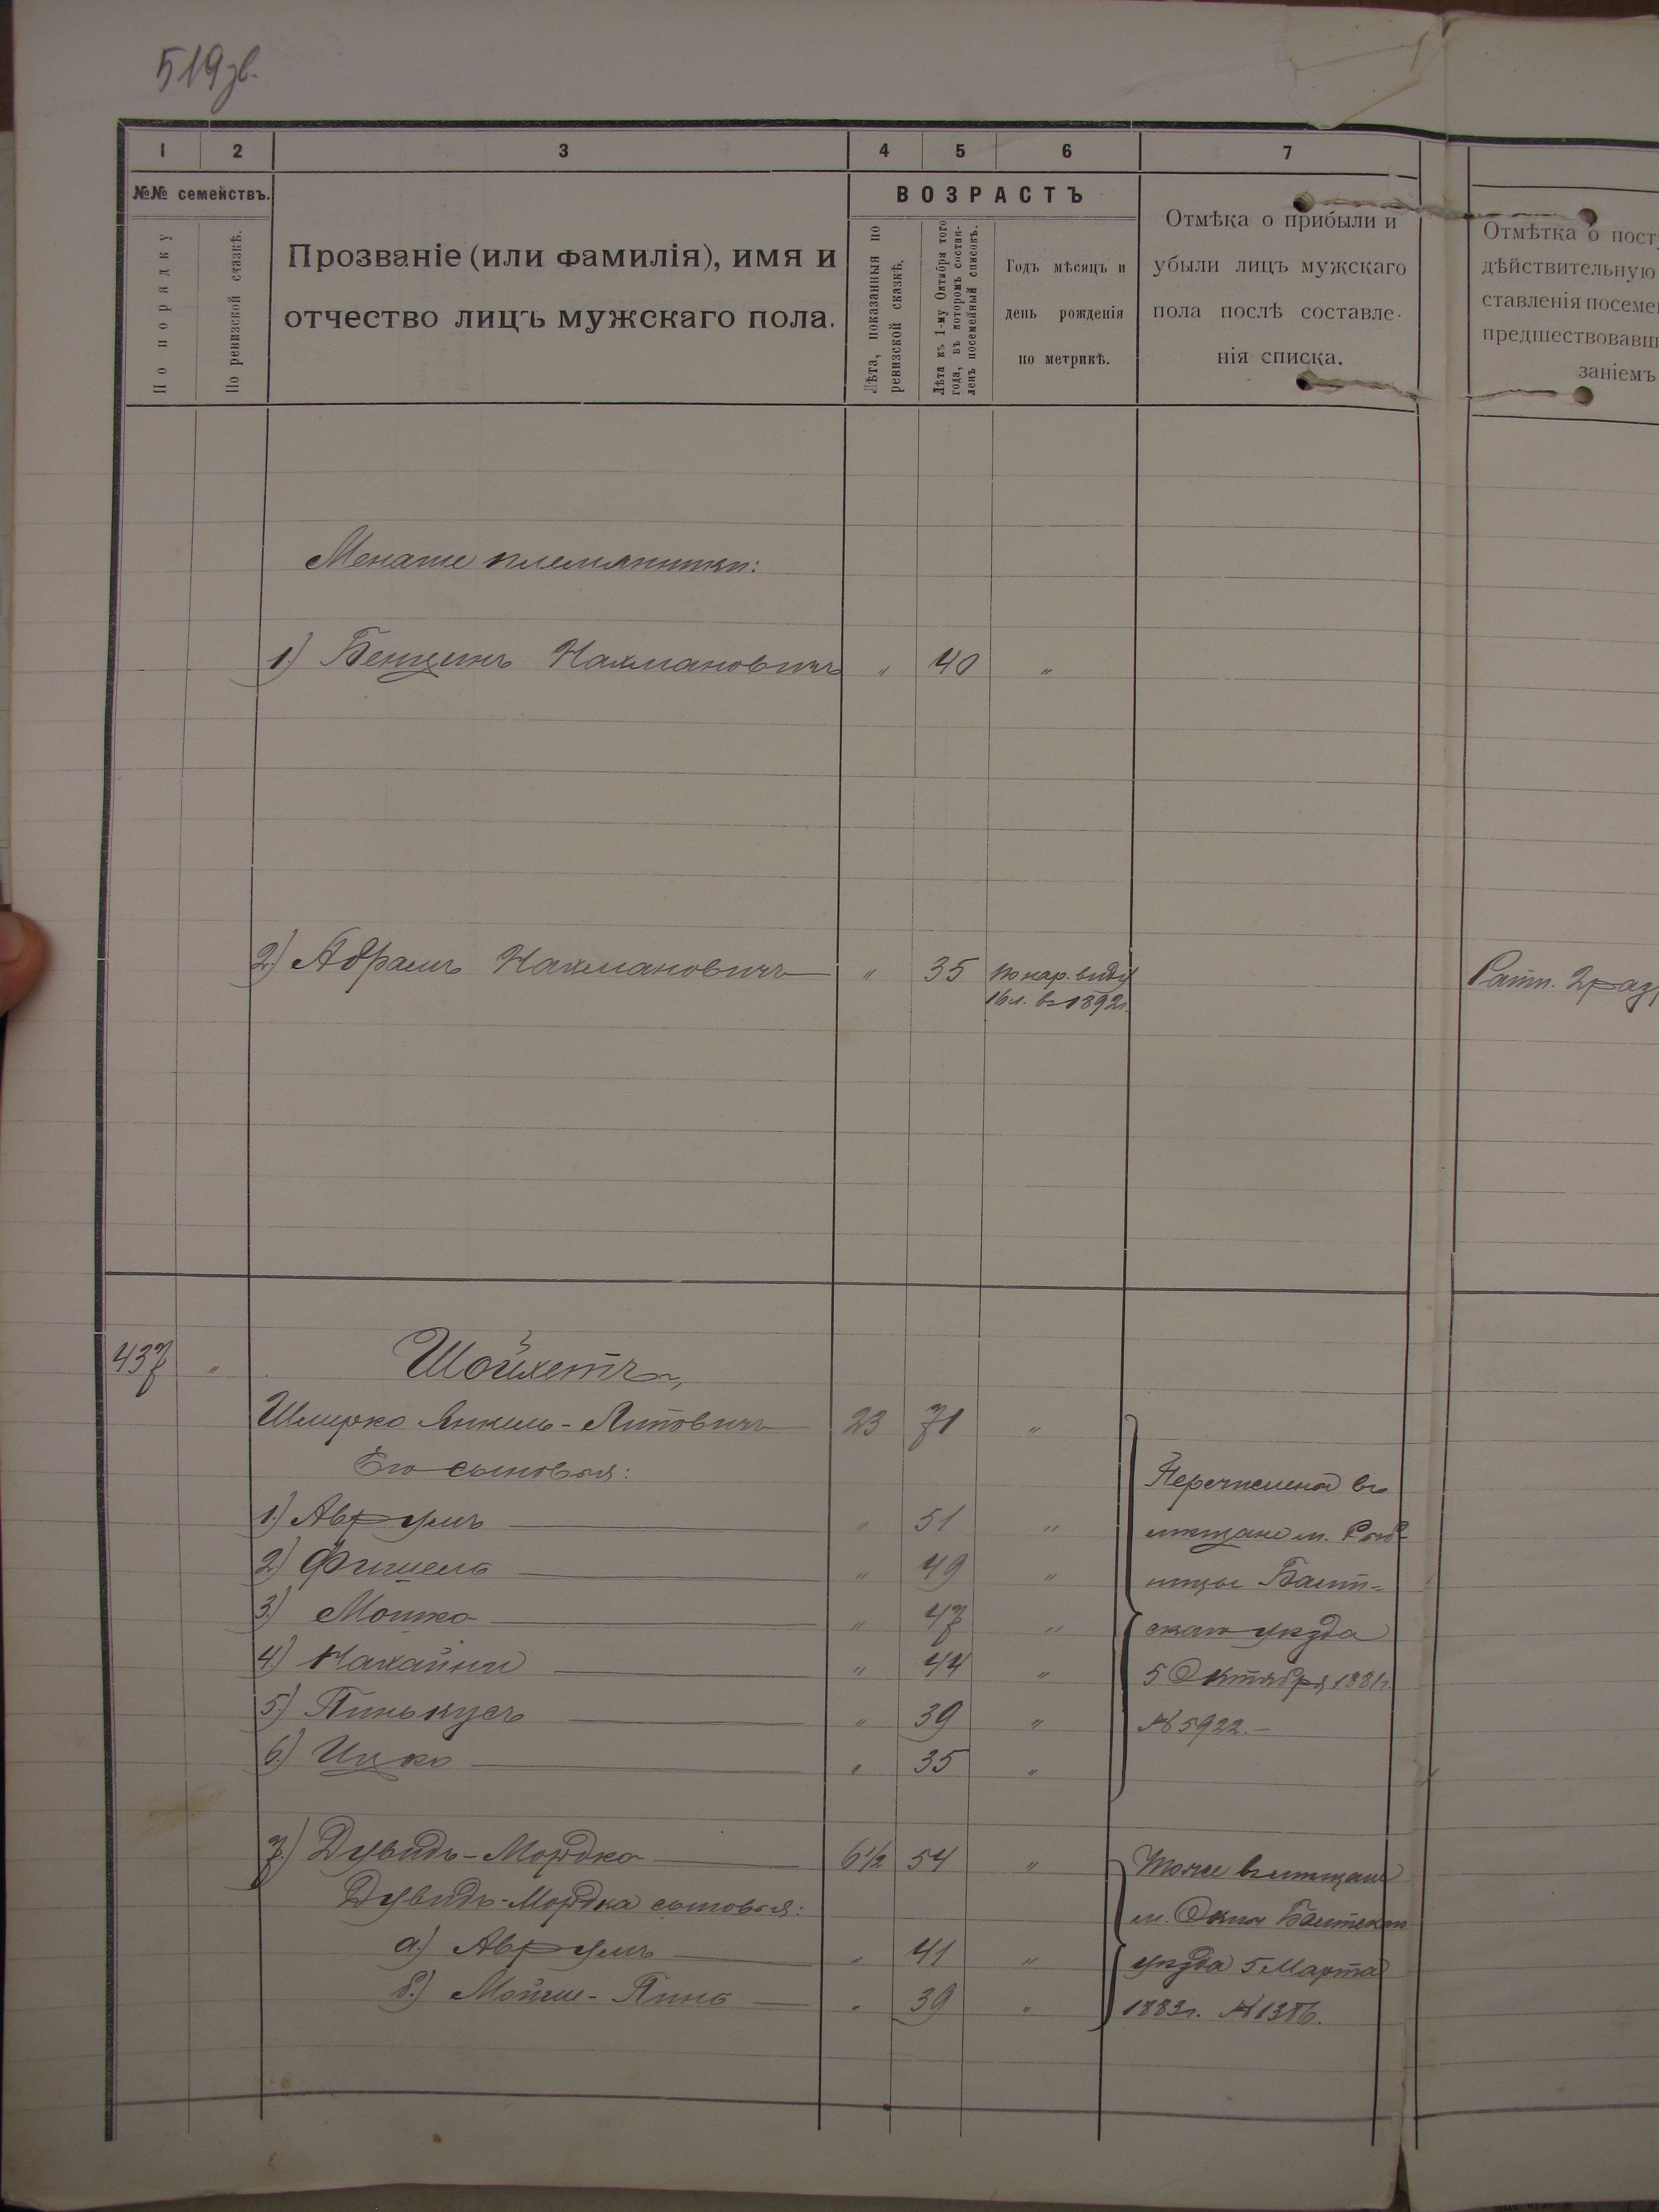 519 зв.
1 2 3 4 5 6 7
№№ семействъ.
По порядку
По ревизской сказкѣ.
Прозваніе (или фамилія), имя и
отчество лицъ мужскаго пола.
ВОЗРАСТЪ
Лѣта, показанныя по
ревизской сказкѣ.
Лѣта къ 1-му Октября того
года, въ которомъ состав-
ленъ посемейный списокъ.
Годъ мѣсяцъ и
день рожденія
по метрикѣ.
Отмѣка о прибыли и
убыли лицъ мужскаго
пола послѣ составле-
нія списка.
Отмѣтка о пост
дѣйствительную
ставленія посеме
предшествовавш
заніемъ
Менаше племянники:
1.) Бенционъ Нахмановичъ " 40 "
2.) Абрамъ Нахмановичъ " 35 по нар. виду
16 л. въ 1892 г.
Ратн. 2 разр
437 " Шойхетъ,
Шмерко Янкель-Лейбовичъ 23 71 "
Его сыновья:
1.) Аврумъ " 51 "
2.) Фишель " 49 "
3.) Мошко " 47 "
4.) Нахайми " 44 "
5.) Пинькусъ " 39 "
6.) Ицко " 35 "
Перечислены въ
мѣщане м. Рыб-
ницы Балт-
скаго уѣзда
5 Октября 1881 г.
№ 5922.—
7.) Дувидъ-Мордко 6½ 54 "
Дувидъ-Мордка сыновья:
а.) Аврумъ " 41 "
б.) Мойше-Пинь " 39 "
Тоже въ мѣщане
м. Окны Балтскаго
уѣзда 5 Марта
1883 г. № 1386.